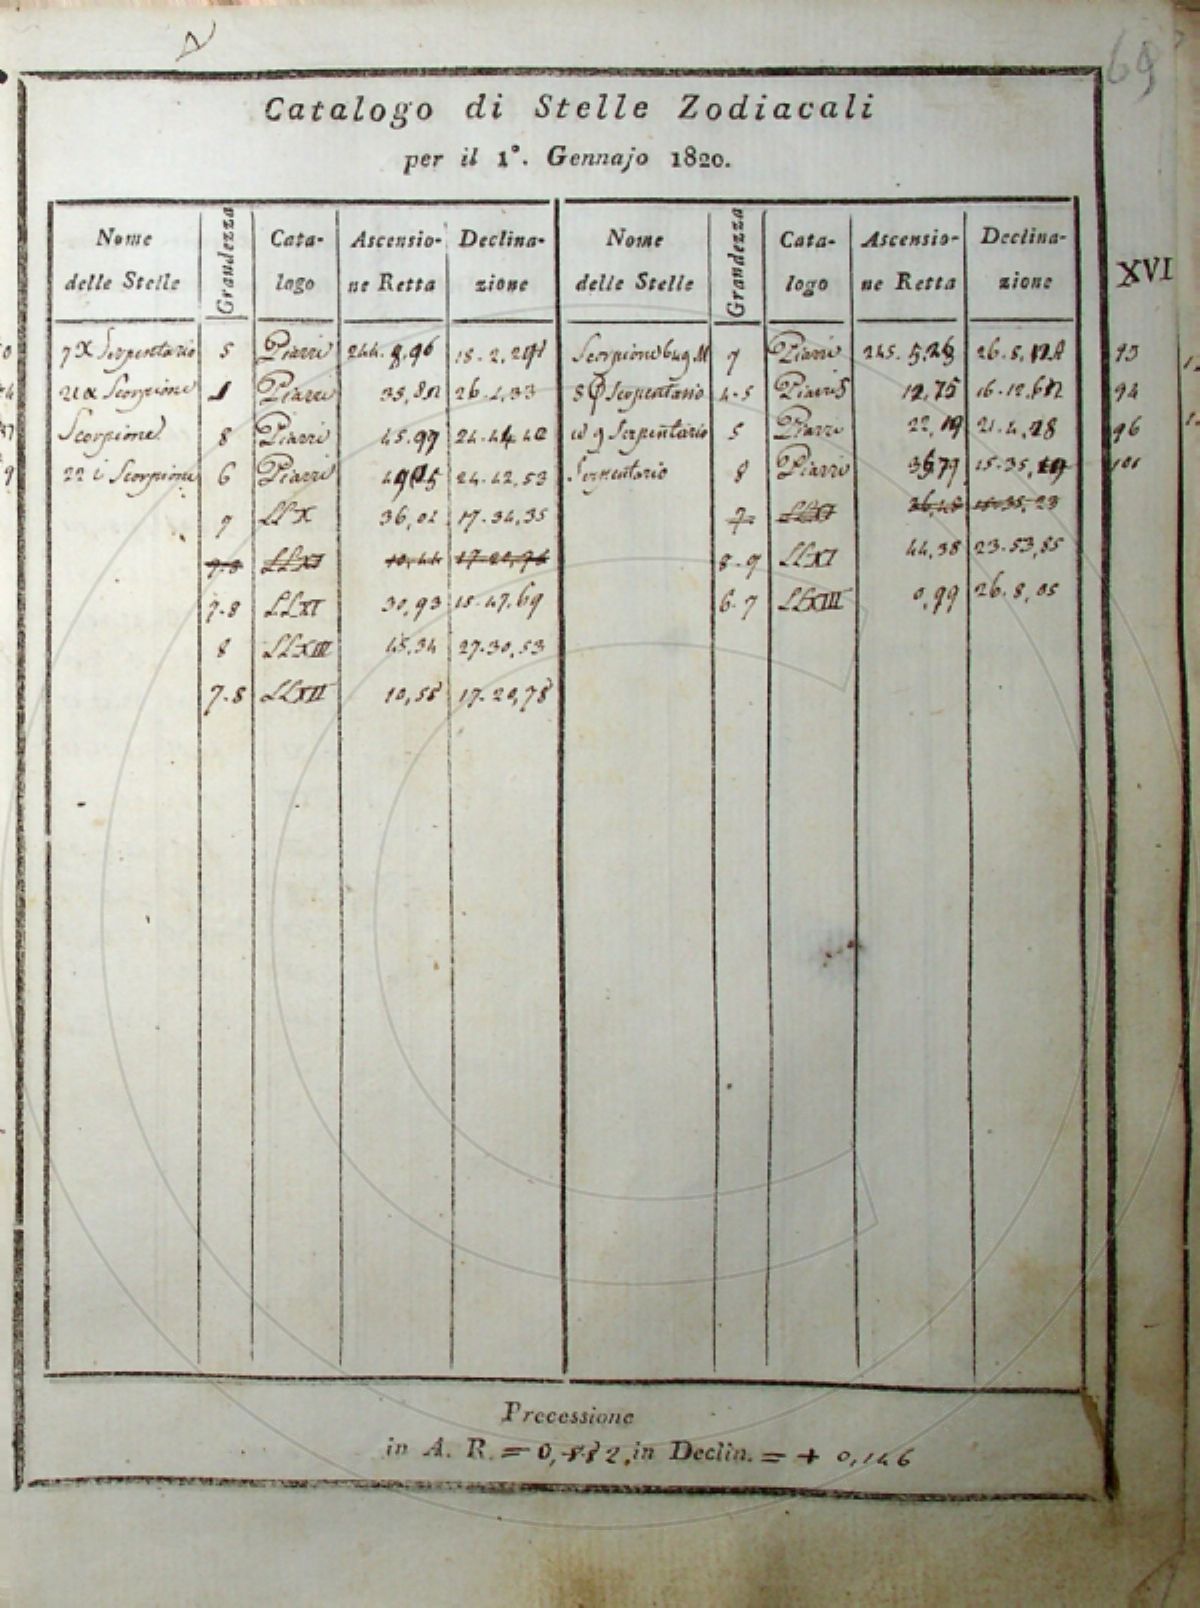 69
Catalogo di Stelle Zodiacali
per il 1°. Gennajo 1820.
Nome delle Stelle Grandezza Cata-logo Ascensio-ne Retta Declina-zione Nome delle Stelle Grandezza Cata-logo Ascensio-ne Retta Declina-zione
XVI
7 χ Serpentario 5 Piazzi 244. 8,96 18. 2, Scorpione 649 M 7 Piazzi 245. 5,28 26. 5, 93
21 α Scorpione 1 Piazzi 26. 2,33 8 φ Serpentario 4-5 Piazzi 12,75 16. 12, 94
Scorpione 8 Piazzi 45,99 24. 44,42 ω 9 Serpentario 5 Piazzi 22,19 21. 4,18 96
22 i Scorpione 6 Piazzi 24. 42,53 Serpentario 8 Piazzi 15. 35, 101
7 LL X 36,02 17. 34,35 7. LL XI 36,48 15. 35,23
7.8 LL XI 10,44 17. 20,76 8-9 LL XI 44,38 23. 53,85
7-8 LL XI 30,93 15. 47,69 6-7 LL XIII 0,99 26. 8,05
8 LL XIII 45,34 27. 30,53
7.8 LL XII 10,58 17. 20,78
Precessione
in A. R. = 0,882, in Declin. = + 0,146